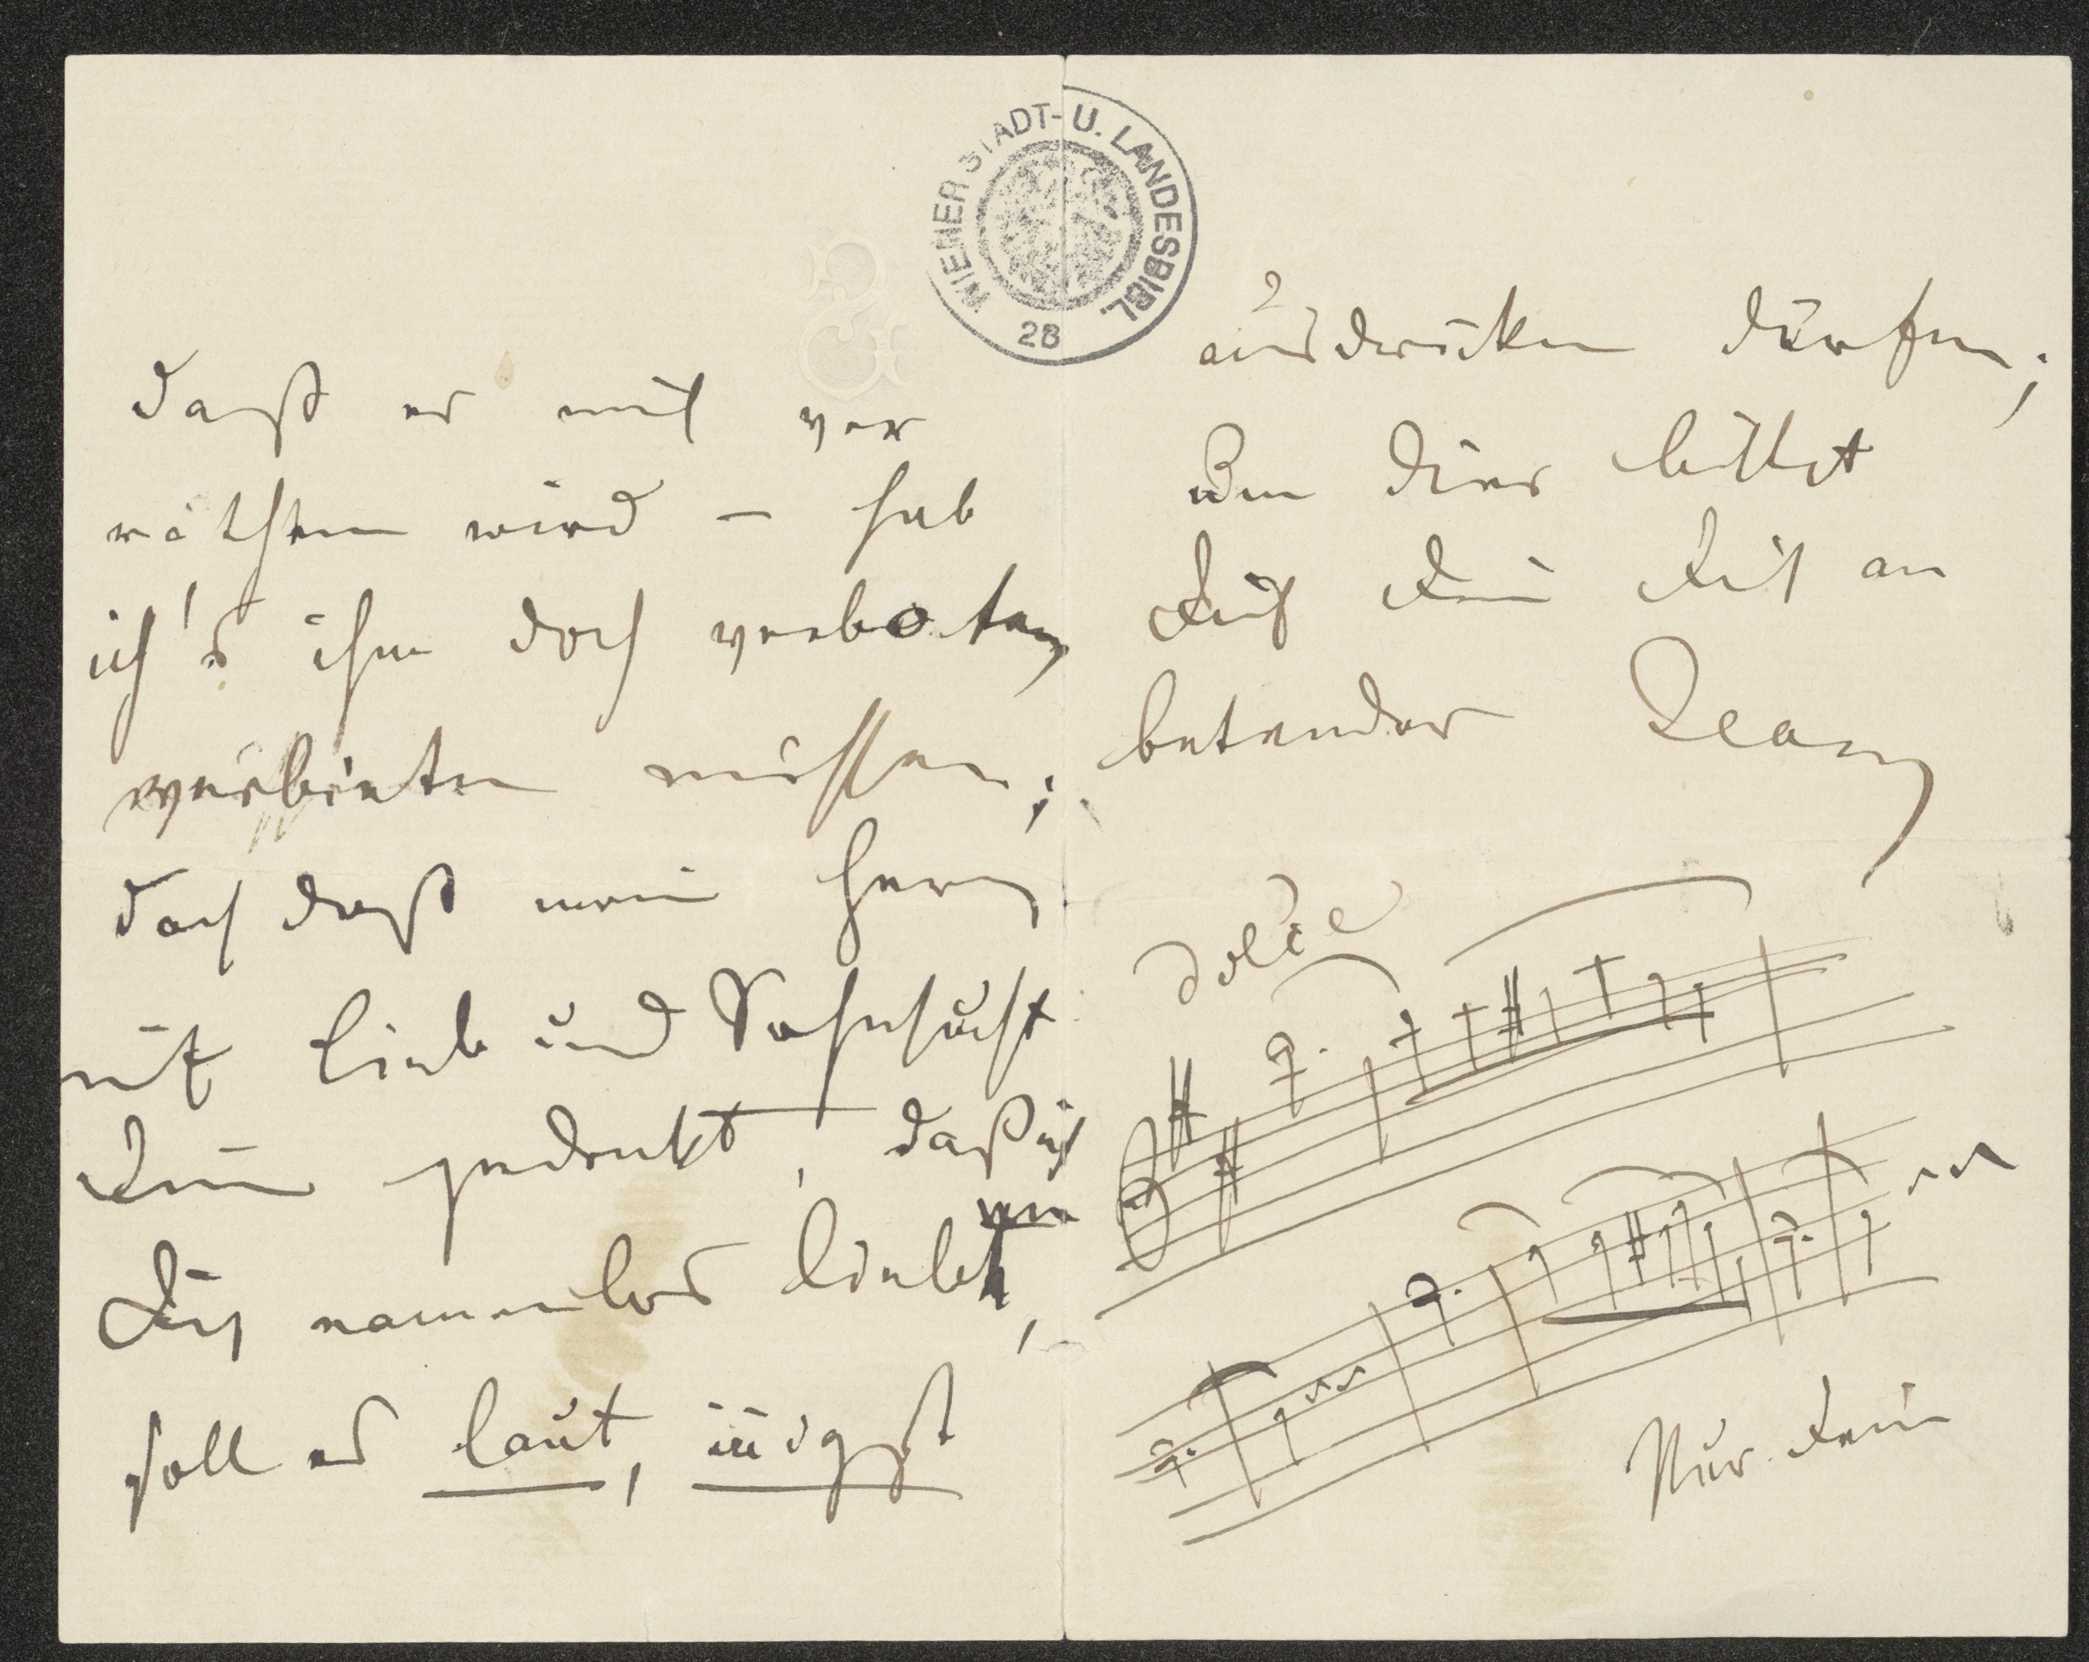 daß er mich ver
räthen wird – hab
ich's ihm doch verboten,
verbieten müssen;
doch daß mein Herz
mit Lieb und Sehnsucht
Dein gedenkt, daß ich
Dich namenlos liebe,
soll es laut, innigst
WIENER STADT- U. LANDESBIBL.
28
2
ausdrücken dürfen;
Um dies bittet
Dich Dein Dich an
betender Jean
dolce
Nur Dein